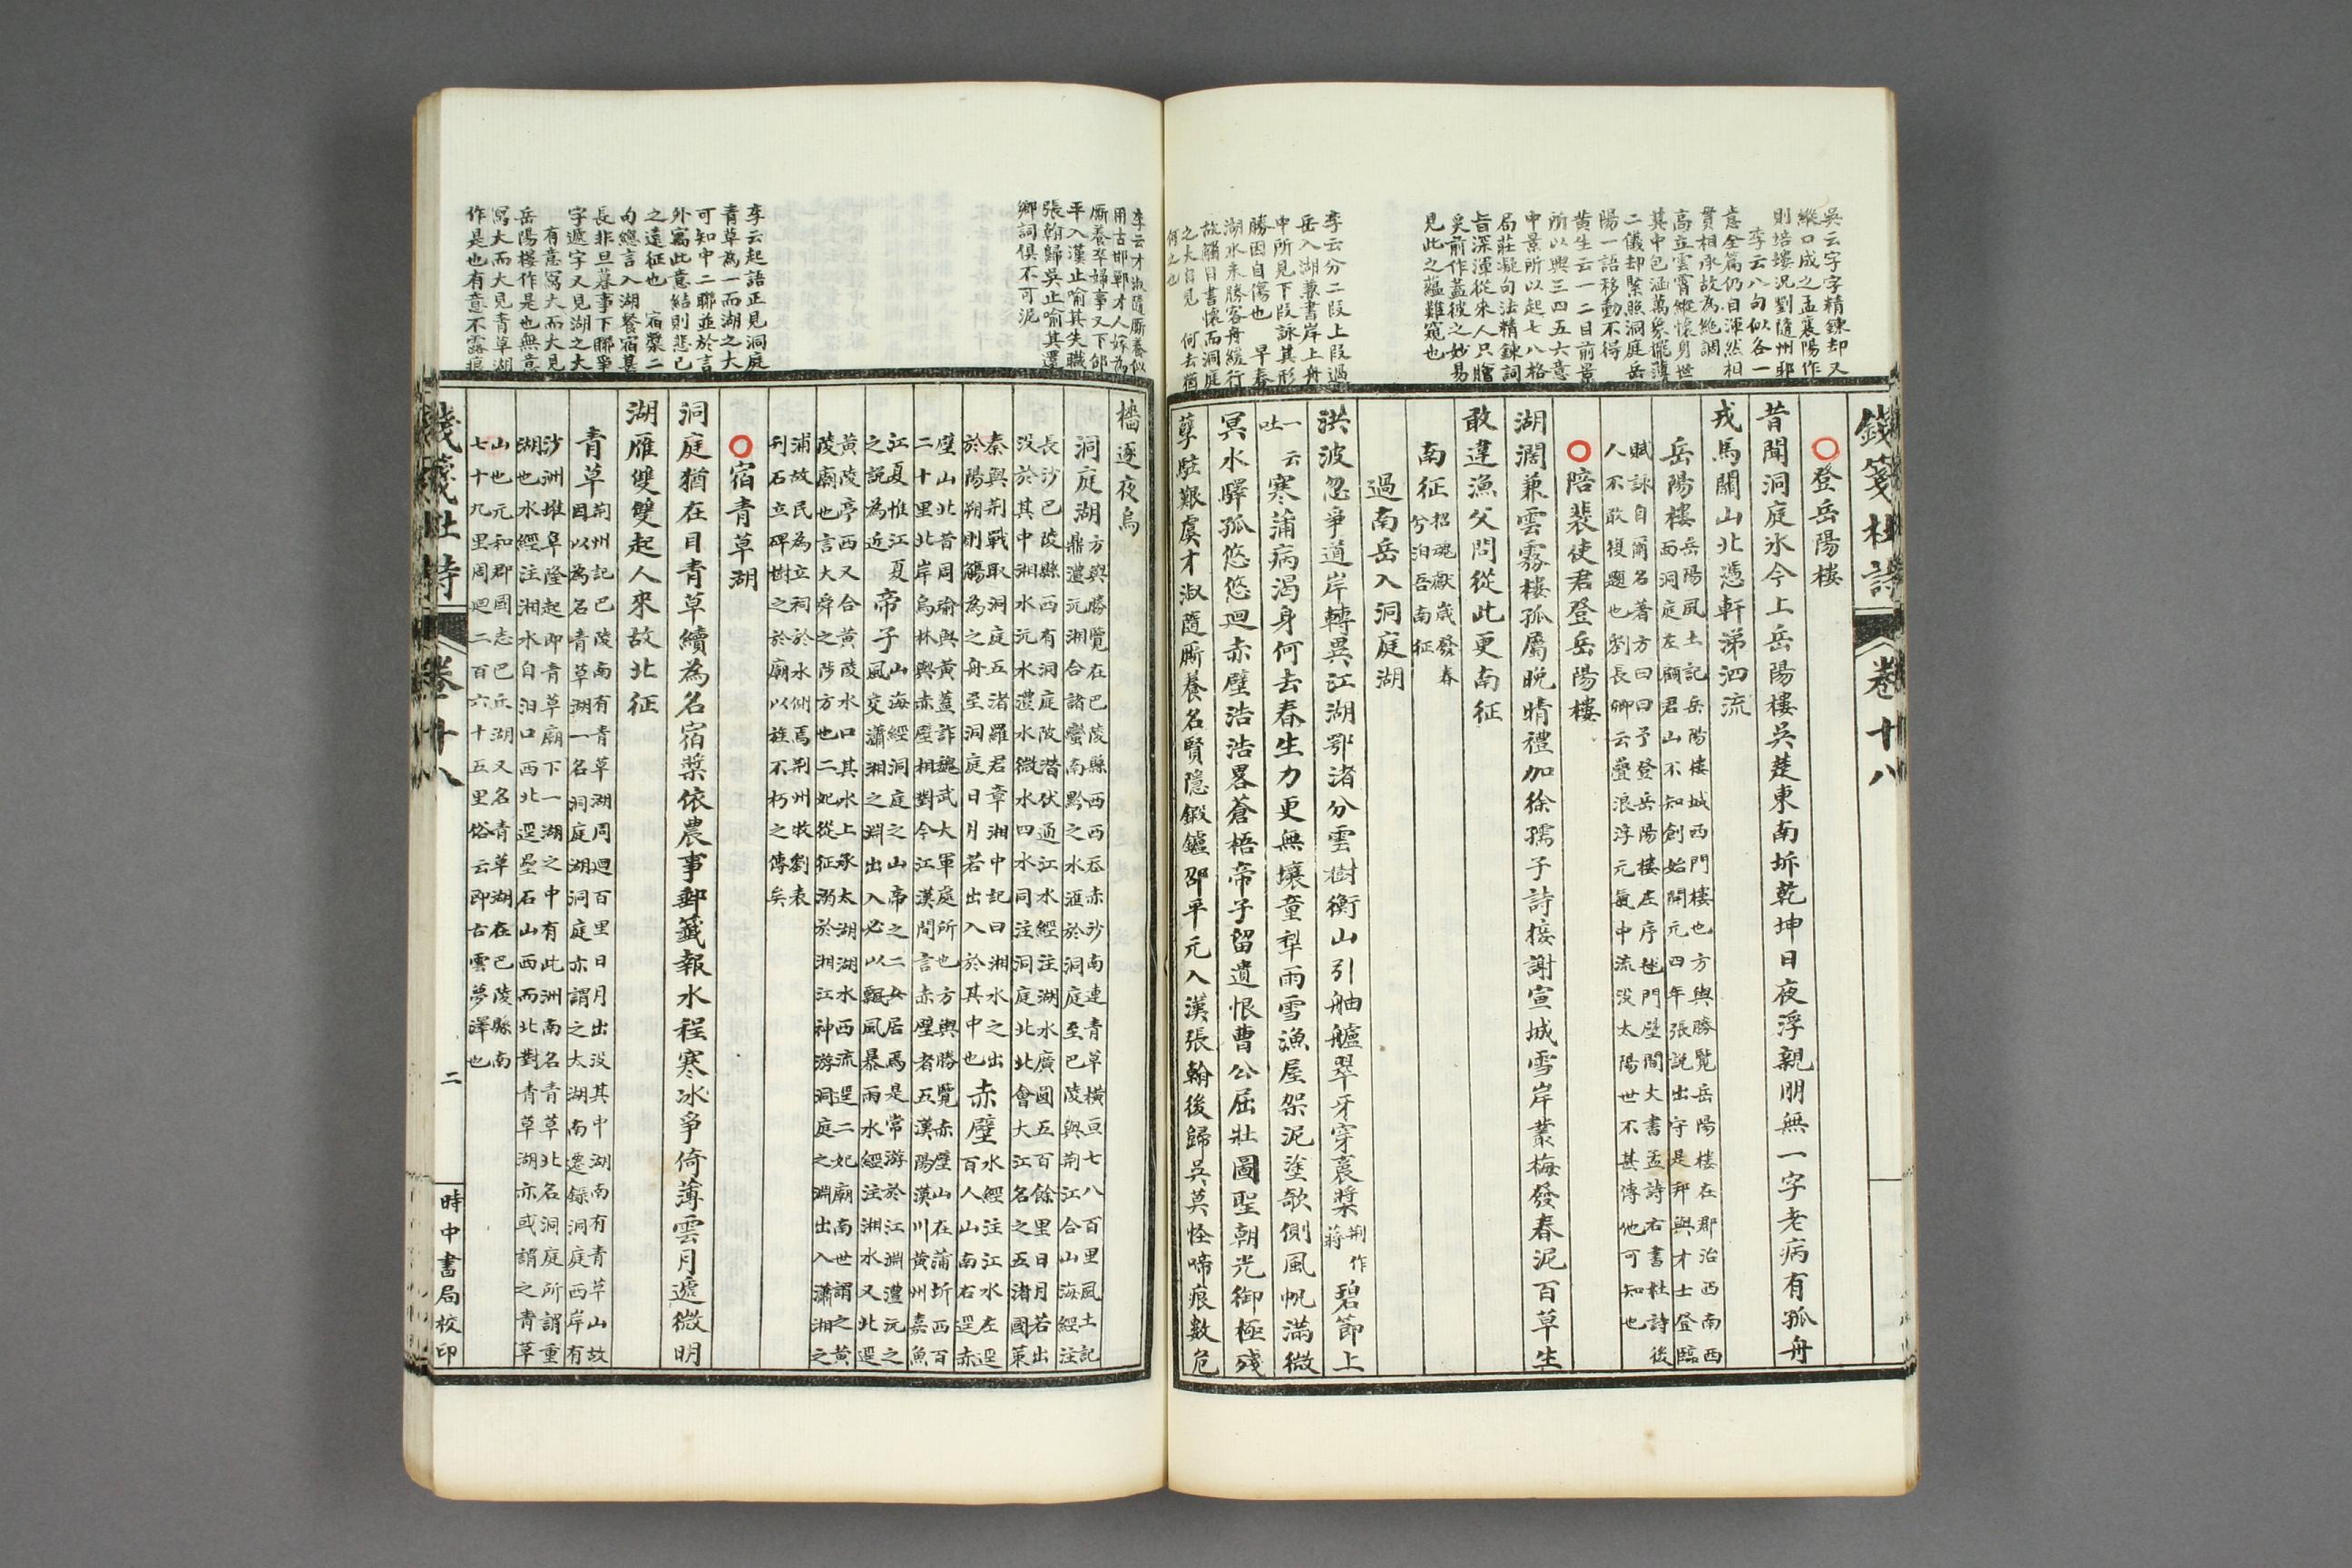 錢箋杜詩
卷十八
吳云字字精鍊却又
縱口成之孟襄陽作
則培塿況劉隨州耶
李云八句似各一
意全篇仍自渾然相
貫相承故為絶調
高立雲霄縱懷身世
其中包涵萬象擺薄
二儀却緊照洞庭岳
陽一語移動不得
黄生云一二目前景
所以興三四五六意
中景所以起七八格
局莊凝句法精鍊詞
旨深渾從來人只膾
炙前作蓋彼之妙易
見此之蘊難窺也
李云分二段上段過
岳入湖兼書岸上舟
中所見下段詠其形
勝因自傷也 早春
湖水未勝客舟緩行
故觸目書懷而洞庭
之大自見 何去猶
何之也
登岳陽樓
昔聞洞庭水今上岳陽樓吳楚東南坼乾坤日夜浮親朋無一字老病有孤舟
戎馬關山北憑軒涕泗流
岳陽樓岳陽風土記岳陽樓城西門樓也方輿勝覽岳陽樓在郡治西南西
面洞庭左顧君山不知創始開元四年張説出守是邦與才士登臨
賦詠自爾名著方回曰予登岳陽樓左序毬門壁間大書孟詩右書杜詩後
人不敢復題也劉長卿云疊浪浮元氣中流没太陽世不甚傳他可知也
陪裴使君登岳陽樓
湖濶兼雲霧樓孤屬晚晴禮加徐孺子詩接謝宣城雪岸叢梅發春泥百草生
敢違漁父問從此更南征
南征招魂獻歲發春
兮汨吾南征
過南岳入洞庭湖
洪波忽爭道岸轉異江湖鄂渚分雲樹衡山引舳艫翠牙穿裛槳荆作
蔣碧節上
一云
吐寒蒲病渇身何去春生力更無壤童犁雨雪漁屋架泥塗欹側風帆滿微
冥水驛孤悠悠迴赤壁浩浩畧蒼梧帝子留遺恨曹公屈壯圖聖朝光御極殘
孽駐艱虞才淑隨厮養名賢隱鍛鑪邵平元入漢張翰後歸吳莫怪啼痕數危
李云才淑隨厮養似
用古邯鄲才人嫁為
厮養卒婦事又下邵
平入漢止喻其失職
張翰歸吳止喻其還
鄉詞俱不可泥
李云起語正見洞庭
青草為一而湖之大
可知中二聯並於言
外寓此意結則悲已
之遠征也 宿槳二
句總言入湖餐宿葢
長非旦暮事下聯爭
字遞字又見湖之大
有意寫大而大見
岳陽樓作是也無意
寫大而大見青草湖
作是也有意不露痕
檣逐夜烏
洞庭湖方輿勝覽在巴陵縣西西吞赤沙南連青草橫亘七八百里風土記
鼎澧沅湘合諸蠻南黔之水滙於洞庭至巴陵與荆江合山海經注
長沙巴陵縣西有洞庭陂潜伏通江水經注湖水廣圓五百餘里日月若出
没於其中湘水沅水澧水微水四水同注洞庭北北會大江名之五渚國策
秦與荆戰取洞庭五渚羅君章湘中記曰湘水之出
於陽朔則觴為之舟至洞庭日月若出入於其中也赤壁水經注江水左逕
百人山南右逕赤
壁山北昔周瑜與黄蓋詐魏武大軍處所也方輿勝覽赤壁山在蒲圻西百
二十里北岸烏林與赤壁相對今江漢間言赤壁者五漢陽漢川黄州嘉魚
江夏惟江夏
之説為近帝子山海經洞庭之山帝之二女居焉是常游於江淵澧沅之
風交瀟湘之淵出入必以飄風暴雨水經注湘水又北逕
黄陵亭西又合黄陵水口其水上承太湖湖水西流逕二妃廟南世謂之黄
陵廟也言大舜之陟方也二妃從征溺於湘江神游洞庭之淵出入瀟湘之
浦故民為立祠於水側焉荆州牧劉表
刊石立碑樹之於廟以旌不朽之傳矣
宿青草湖
洞庭猶在目青草續為名宿槳依農事郵籤報水程寒冰爭倚薄雲月遞微明
湖雁雙雙起人來故北征
青草荆州記巴陵南有青草湖周迴百里日月出没其中湖南有青草山故
因以為名青草湖一名洞庭湖洞庭亦謂之太湖南遷録洞庭西岸有
沙洲堆阜隆起即青草廟下一湖之中有此洲南名青草北名洞庭所謂重
湖也水經注湘水自汨口西北逕壘石山西而北對青草湖亦或謂之青草
山也元和郡國志巴丘湖又名青草湖在巴陵縣南
七十九里周廻二百六十五里俗云即古雲夢澤也
錢箋杜詩
卷十八
二
時中書局校印